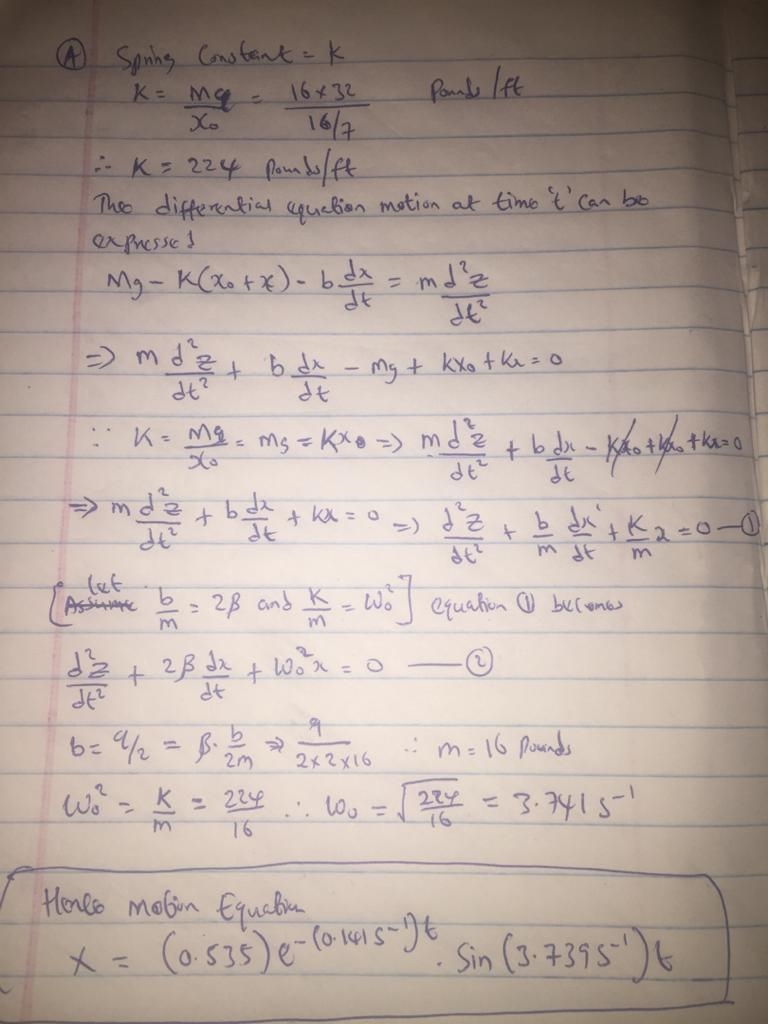 Ⓐ Spring Constant = K
K = Mg/x₀ = 16×32/16/7 Pounds/ft
∴ K = 224 pounds/ft
The differential equation motion at time 't' can be
expressed
Mg − K(x₀+x) − b dx/dt = m d²z/dt²
⇒ m d²z/dt² + b dx/dt − Mg + Kx₀ + Kx = 0
∵ K = Mg/x₀ = Mg = Kx₀ ⇒ m d²z/dt² + b dx/dt − Kx₀ + Kx₀ + Kx = 0
⇒ m d²z/dt² + b dx/dt + Kx = 0 ⇒ d²z/dt² + b/m dx/dt + K/m x = 0 — ①
[Assume let b/m = 2β and K/m = ω₀²] equation ① becomes
d²z/dt² + 2β dx/dt + ω₀²x = 0 — ②
b = 9/2 = β· b/2m ⇒ 9/2×2×16 ∴ m = 16 Pounds
ω₀² = K/m = 224/16 ∴ ω₀ = √224/16 = 3.741 s⁻¹
Hence Motion Equation
X = (0.535) e^−(0.141 s⁻¹)t . Sin (3.739 s⁻¹) t